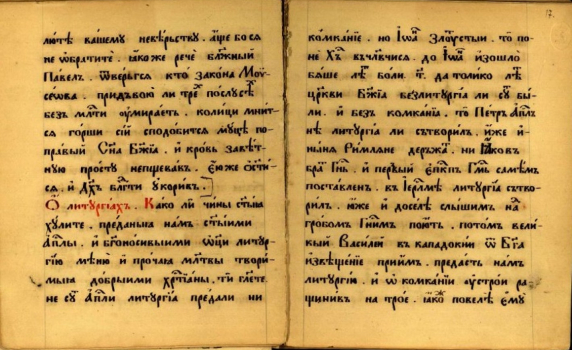 лютѣ вашемꙋ невѣрьствꙋ . аще бо сѧ
не ѡбратите . ꙗкоже рече бл҃жныи
Павелъ . ѿвергьсѧ кто закона Моѵ-
сеѡва . придъвою ли трех послꙋсѣ
безъ мл҃ти ꙋмираетъ . колици мнит-
сѧ горши сїи сподобитсѧ мꙋцѣ по-
правыи Сн҃а Бж҃їа . и кровь завѣт-
нꙋю простꙋ непщевавъ . Еюже ѡст҃и-
сѧ . и Дх҃ъ блг҃ти ꙋкоривъ .
О литꙋргїахъ . Како ли чины ст҃ыѧ
хꙋлите . преданыѧ намъ ст҃ыими
Ап҃лы . и бг҃оносивыими ѡц҃и литꙋр-
гїю мѣню и прочаѧ мл҃твы твори-
мыѧ добрыими хрⷭ҇тїаны . ти гл҃ете
не сꙋ Ап҃ли литꙋргїа предали ни
17.
комканїе . но Іѡ҃а Злоꙋстыи . то по-
не Хⷭ҇а въчл҃вчисѧ . до Іѡ҃а изошло
бѧше лѣ боли .т҃. да толико лѣ
цр҃кви Бж҃їа безлитꙋргїа ли сꙋ бы-
ли . и безъ комканїа . то Петръ Ап҃лъ
нѣ литꙋргїа ли сътворилъ . иже и
нын҃ѧ Римлѧне держаⷮ . ни Іаковъ
браⷮ Гн҃ь . и первыи Еп҃кпъ Гм҃ь самѣмъ
поставленъ . въ Іер҃лмѣ литꙋргїа сътво-
рилъ . юже и доселѣ слышимъ на
гробомъ Гн҃имъ поютъ . потом вели-
кыи Василїи въ Кападокии ѿ Бг҃а
извѣщенїе прїимъ . предасть намъ
литꙋргїю . и ѡ комканїи ꙋстрои ра-
щинивъ на трое . ꙗкоⷤ повелѣ емꙋ